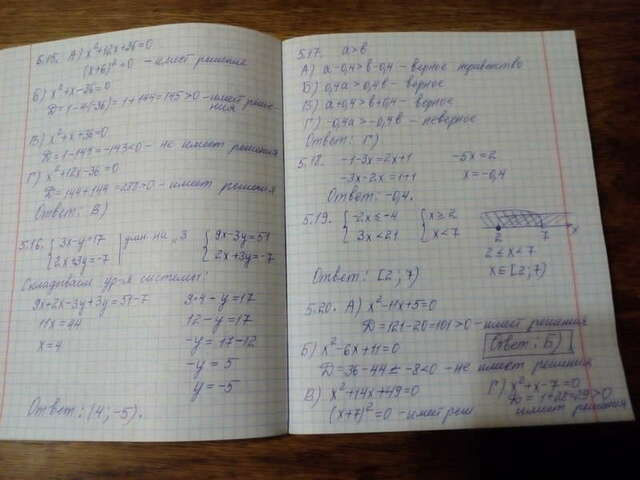 5.15. А) x²+12x+36=0
(x+6)²=0 - имеет решение
Б) x²+x-36=0
D=1-4(-36)=1+144=145>0 - имеет решения
В) x²+x+36=0
D=1-144=-143<0 - не имеет решения
Г) x²+12x-36=0
D=144+144=288>0 - имеет решения
Ответ: В)
5.16. { 3x-y=17 | умн. на "3 { 9x-3y=51
2x+3y=-7 2x+3y=-7
Складываем ур-я системы:
9x+2x-3y+3y=51-7 3·4-y=17
11x=44 12-y=17
x=4 -y=17-12
-y=5
y=-5
Ответ: (4; -5).
5.17. a>b
А) a-0,4>b-0,4 - верное неравенство
Б) 0,4a>0,4b - верное
В) a+0,4>b+0,4 - верное
Г) -0,4a>-0,4b - неверное
Ответ: Г)
5.18. -1-3x=2x+1 -5x=2
-3x-2x=1+1 x=-0,4
Ответ: -0,4.
5.19. { -2x≤-4 { x≥2
3x<21 x<7
2 7 x
2≤x<7
Ответ: [2; 7) x∈[2; 7)
5.20. А) x²-11x+5=0
D=121-20=101>0 - имеет решения
Б) x²-6x+11=0 Ответ: Б)
D=36-44=-8<0 - не имеет решения
В) x²+14x+49=0
(x+7)²=0 - имеет реш
Г) x²+x-7=0
D=1+28=29>0
имеет решения